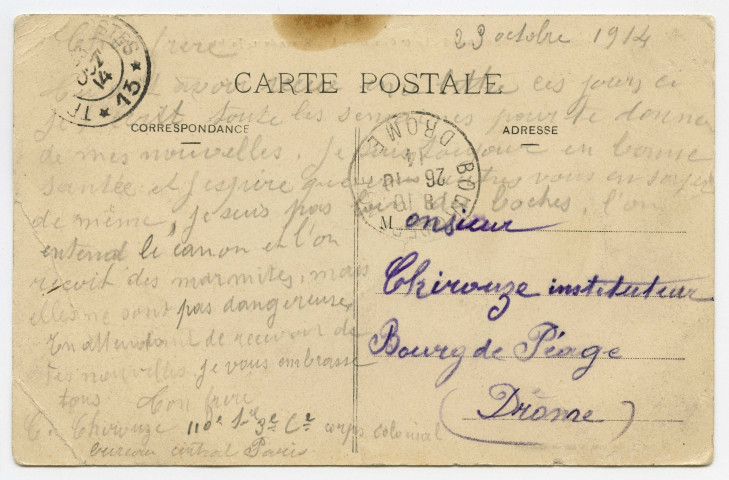 23 octobre 1914
Cher frère
CARTE POSTALE
CORRESPONDANCE
ADRESSE
avoir lettre ces jours ci
toute les semaines pour te donner
de mes nouvelles. Je suis toujour en bonne
santée et j'espère que vous en soyez
de même, je suis pas loin des boches, l'on
entend le canon et l'on
reçoit des marmites, mais
elles ne sont pas dangereuse.
En attendant de recevoir de
tes nouvelles, je vous embrasse
tous Ton frère
Chirouze 3e Cie corps colonial
bureau central Paris
Monsieur
Chirouze instituteur
Bourg de Péage
(Drôme)
POSTES
OCT
14
* 13 *
DROME
14
26 10